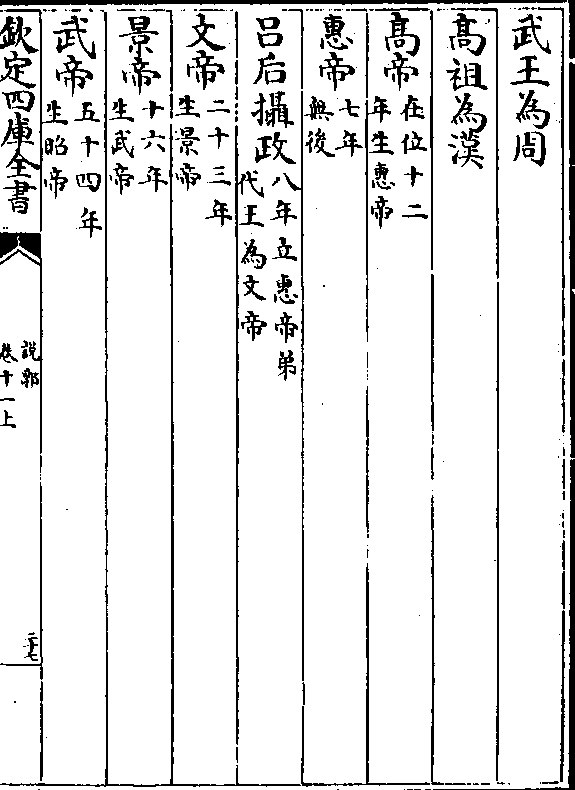 武王為周
髙祖為漢
髙帝在位十二年生惠帝
惠帝七年無後
吕后攝政八年立惠帝弟代王為文帝
文帝二十三年生景帝
景帝十六年生武帝
武帝五十四年生昭帝
欽定四庫全書
說郛
卷十一上
二十七